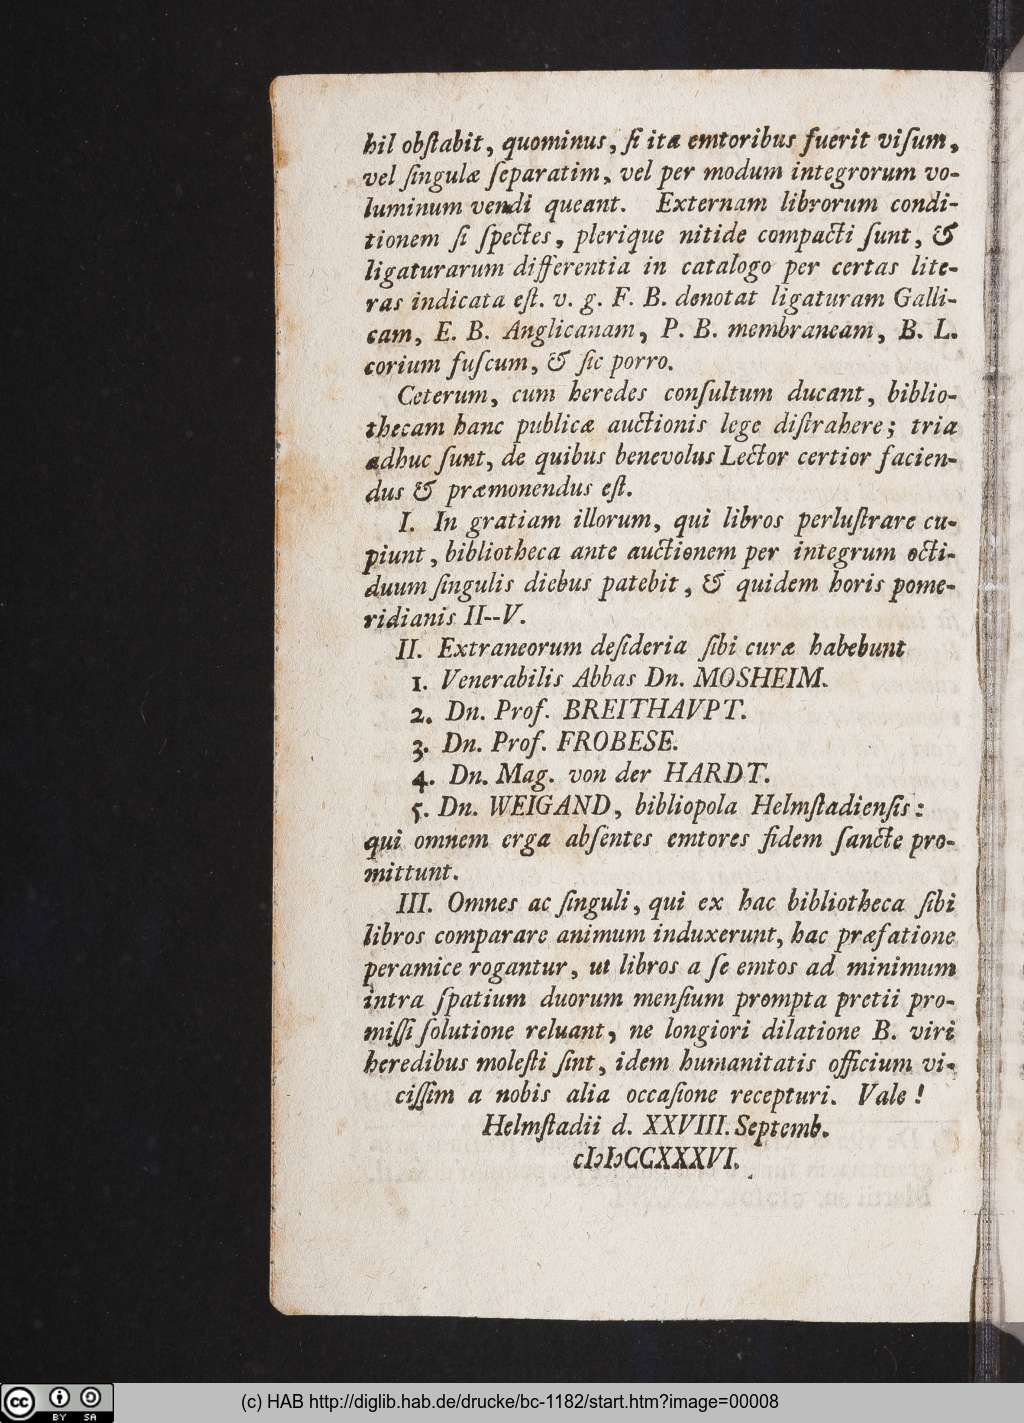 hil obſtabit, quominus, ſi ita emtoribus fuerit viſum,
vel ſingulæ ſeparatim, vel per modum integrorum vo-
luminum vendi queant. Externam librorum condi-
tionem ſi ſpectes, plerique nitide compacti ſunt, &
ligaturarum differentia in catalogo per certas lite-
ras indicata eſt. v. g. F. B. denotat ligaturam Galli-
cam, E. B. Anglicanam, P. B. membraneam, B. L.
corium fuſcum, & ſic porro.
Ceterum, cum heredes conſultum ducant, biblio-
thecam hanc publicæ auctionis lege diſtrahere; tria
adhuc ſunt, de quibus benevolus Lector certior facien-
dus & præmonendus eſt.
I. In gratiam illorum, qui libros perluſtrare cu-
piunt, bibliotheca ante auctionem per integrum octi-
duum ſingulis diebus patebit, & quidem horis pome-
ridianis II--V.
II. Extraneorum deſideria ſibi curæ habebunt
1. Venerabilis Abbas Dn. MOSHEIM.
2. Dn. Prof. BREITHAVPT.
3. Dn. Prof. FROBESE.
4. Dn. Mag. von der HARDT.
5. Dn. WEIGAND, bibliopola Helmſtadienſis:
qui omnem erga abſentes emtores fidem ſancte pro-
mittunt.
III. Omnes ac ſinguli, qui ex hac bibliotheca ſibi
libros comparare animum induxerunt, hac præfatione
peramice rogantur, ut libros a ſe emtos ad minimum
intra ſpatium duorum menſium prompta pretii pro-
miſſi ſolutione reluant, ne longiori dilatione B. viri
heredibus moleſti ſint, idem humanitatis officium vi-
ciſſim a nobis alia occaſione recepturi. Vale!
Helmſtadii d. XXVIII. Septemb.
cIↄIↄCCXXXVI.
cc BY SA
(c) HAB http://diglib.hab.de/drucke/bc-1182/start.htm?image=00008